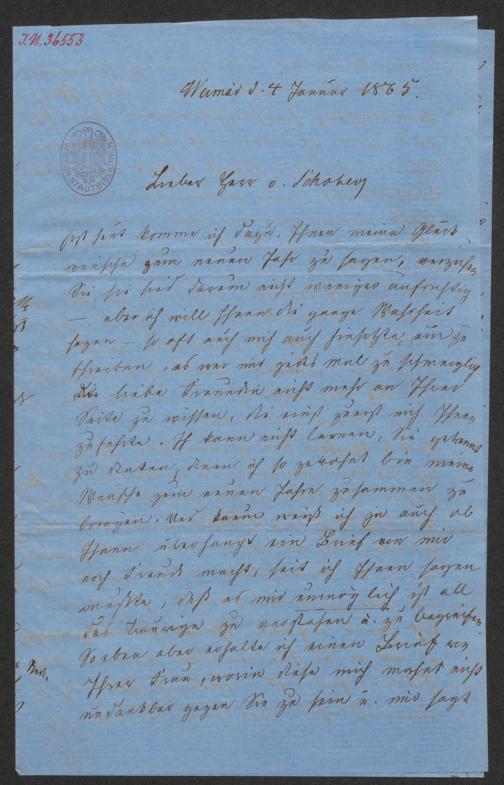 I.N. 36553
Weimar d. 4 Januar 1865.
Lieber Herr v. Schober,
Erst heut komme ich dazu, Ihnen meine Glück
wünsche zum neuen Jahr zu sagen, verzeihen
Sie sie sind darum nicht weniger aufrichtig
— aber ich will Ihnen die ganze Wahrheit
sagen — so oft auch mich auch hinsetzte, um zu
schreiben, es war mir jedes Mal zu schmerzlich
die liebe Freundin nicht mehr an Ihrer
Seite zu wissen, die mich zuerst Ihnen
zuführte. Ich kann nicht lernen, Sie getrennt
zu denken, denen ich so gewohnt bin meine
Wünsche zum neuen Jahre zusammen zu
bringen. Und kaum weiß ich ja auch ob
Ihnen überhaupt ein Brief von mir
noch Freude macht, seit ich Ihnen sagen
mußte, daß es mir unmöglich ist all
das Traurige zu verstehen u. zu begreifen
So eben aber erhalte ich einen Brief von
Ihrer Frau, worin diese mich mahnt nicht
undankbar gegen Sie zu sein u. mir sagt